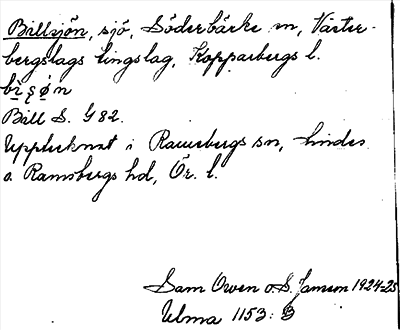 Billsjön, sjö, Söderbärke sn, Väster-
bergslags tingslag, Kopparbergs l.
Bill S. G 82.
Upptecknat i Ramsbergs sn, Lindes
o. Ramsbergs hd, Ör. l.
Sam Owen o. S. Janson 1924-25
Ulma 1153: 3